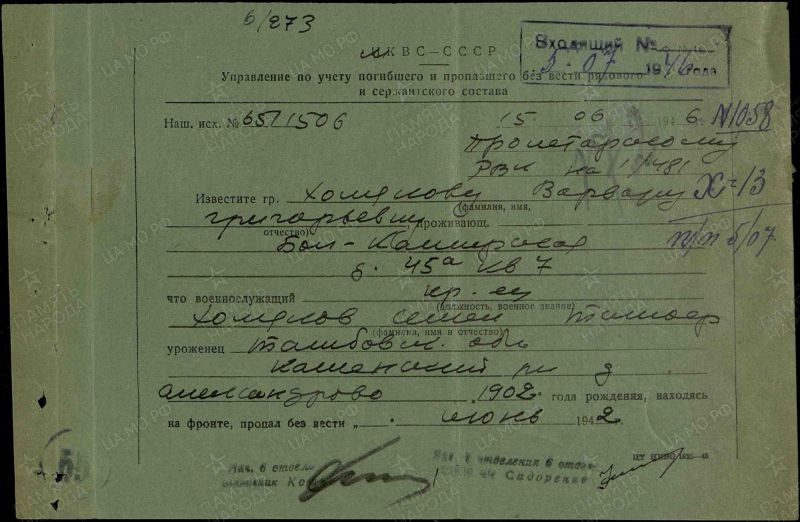 6/273
НКВС-СССР
Входящий №
5-07 1946 года
Управление по учету погибшего и пропавшего без вести рядового
и сержантского состава
Наш. исх. № 65/1506 15 06 1946 г. №1058
Пролетарскому
РВК на 1/481
Известите гр. Хомякову Варвару Х-13
(фамилия, имя,
Григорьевну, проживающ.
отчество)
Бол-Каширская 5/07
д. 45а кв 7
что военнослужащий кр-ец
(должность, военное звание)
Хомяков Семен
(фамилия, имя и отчество)
уроженец Тамбовск. обл
Каменский рн д
Александрово 1902 года рождения, находясь
на фронте, пропал без вести „ . июнь 1942
Нач. 6 отдела
Нач. 1 отделения 6 отдела
Сидоренко
55
ЦАМО.РФ
ПАМЯТЬ НАРОДА